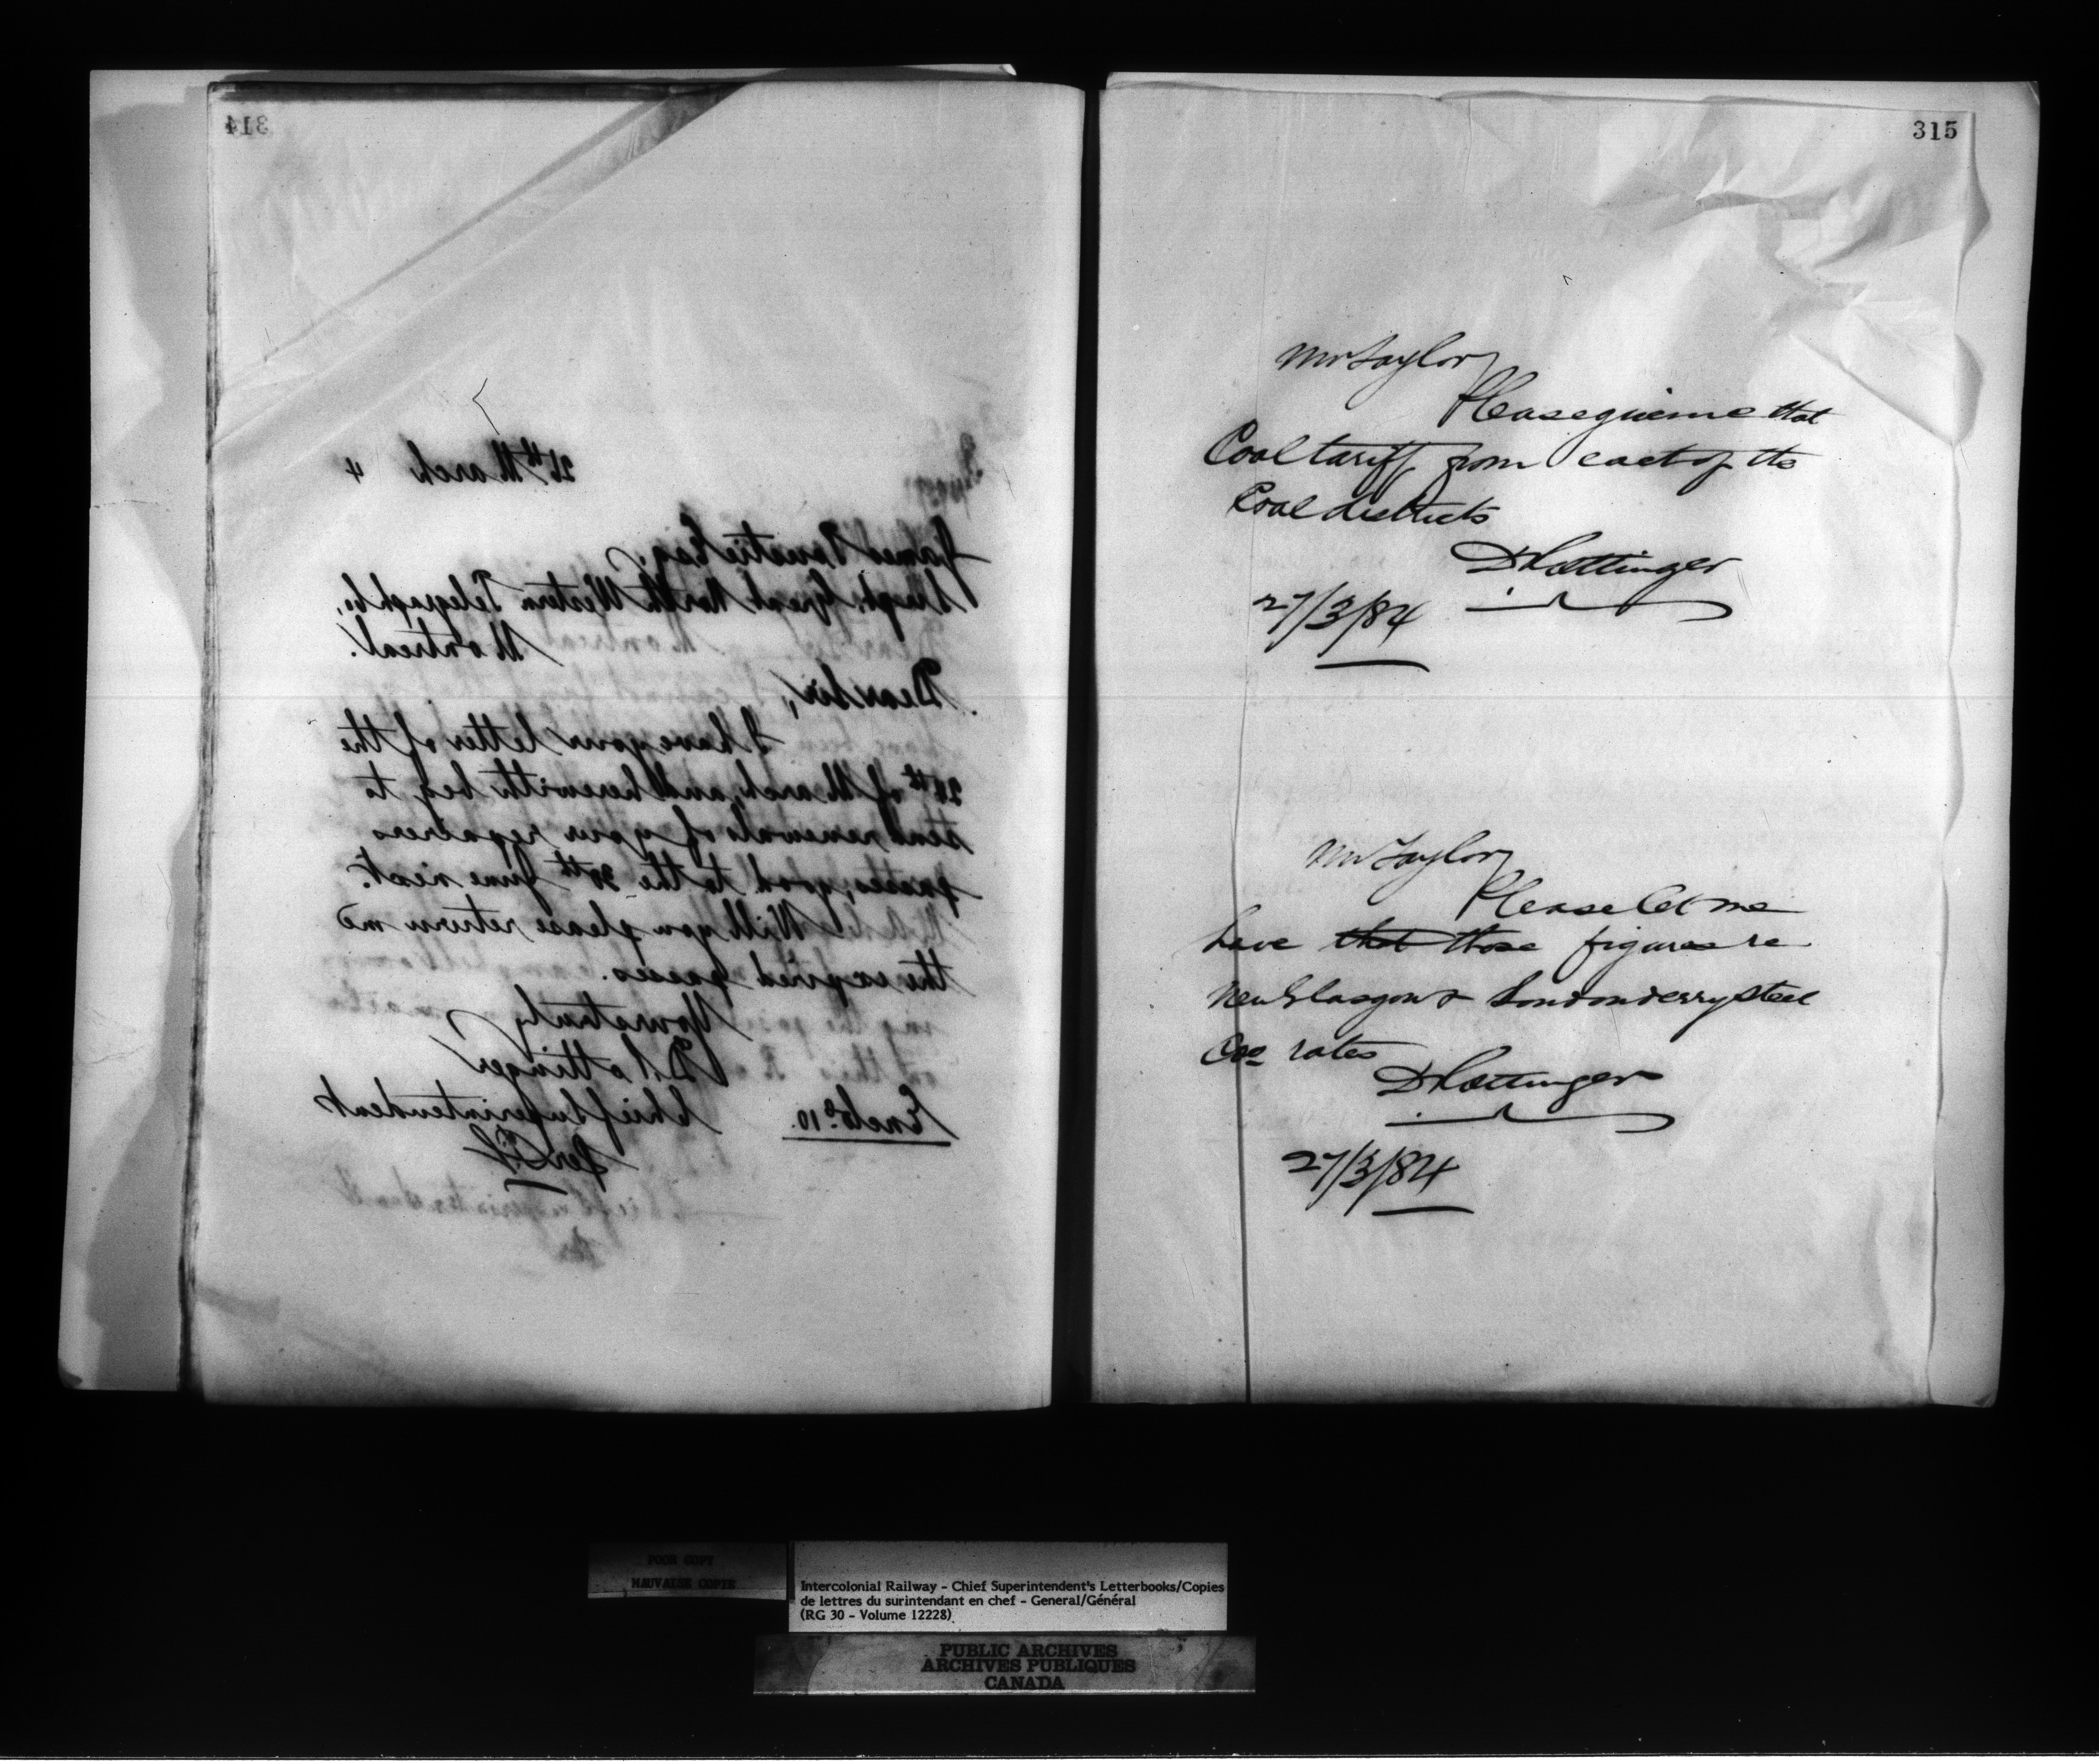 314
26th March 4
James Esq.
Supt. Great North Western Telegraph Co,
Montreal.
Dear Sir,
I have your letter of the
of March, and herewith beg to
send renewals of your repairers
passes, good to the 30th June next.
Will you please return me
the expired passes.
Yours truly
D Pottinger
Chief Superintendent
Per
Enclo. 10.
315
Mr Taylor
Please give me that
Coal tariff from each of the
Coal districts
D Pottinger
27/3/84
Mr Taylor
Please let me
have that those figures re
New Glasgow & Londonderry Steel
Coo rates
D Pottinger
27/3/84
POOR COPY
MAUVAISE COPIE
Intercolonial Railway - Chief Superintendent's Letterbooks/Copies
de lettres du surintendant en chef - General/Général
(RG 30 - Volume 12228)
PUBLIC ARCHIVES
ARCHIVES PUBLIQUES
CANADA